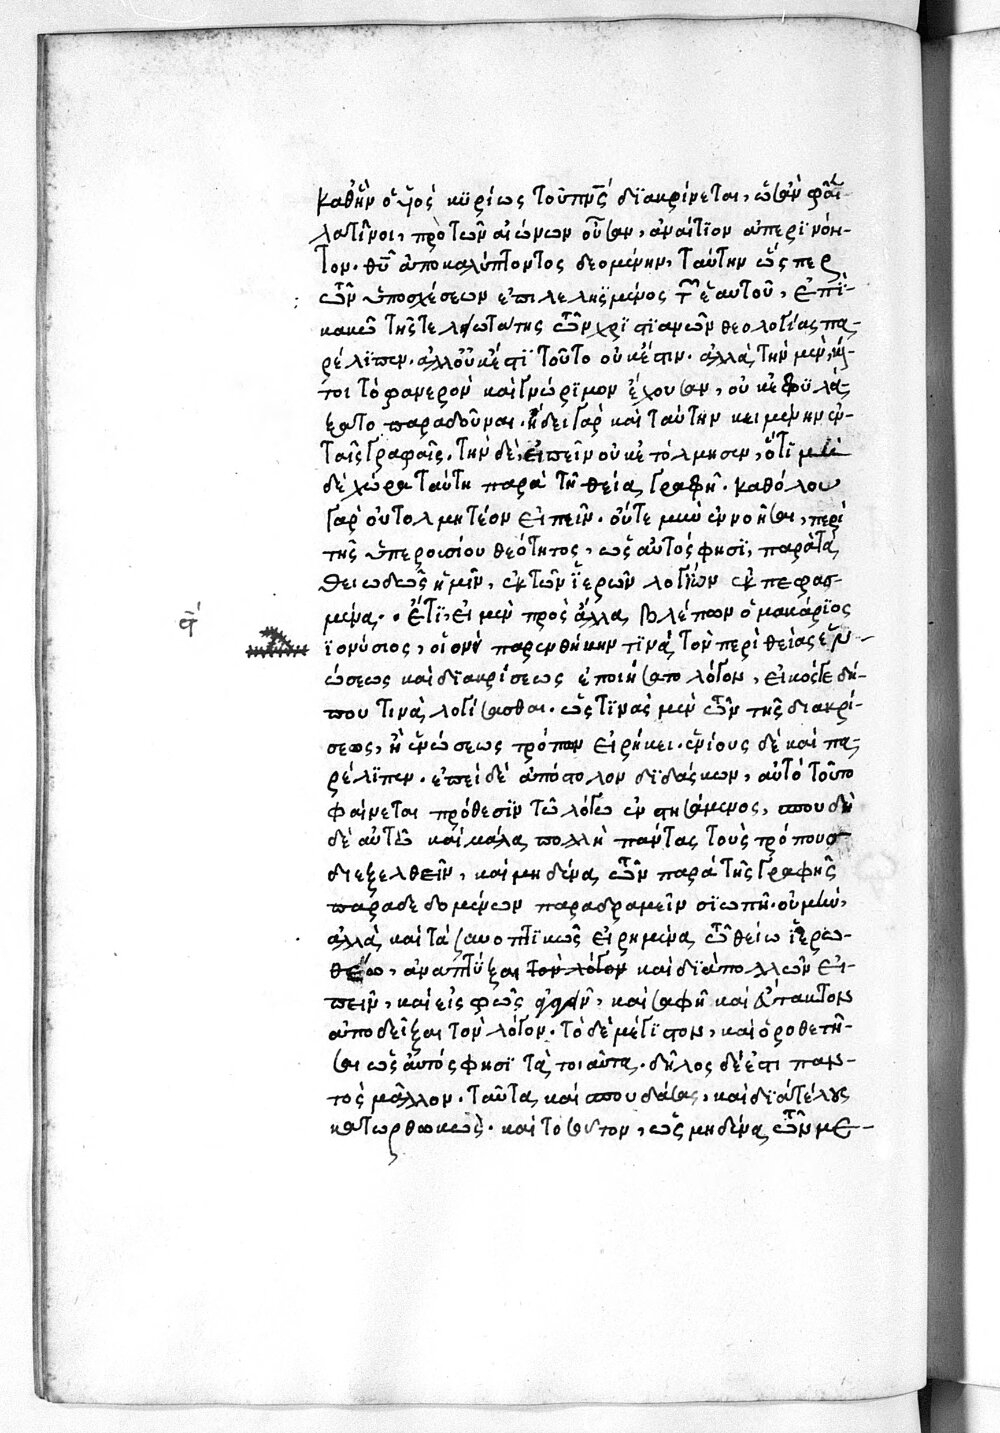 καθ' ἣν ὁ υἱὸς κυρίως τοῦ πνς διακρίνεται, ὥς ἂν φαῖεν
λατῖνοι, πρὸ τῶν αἰώνων οὖσαν, ἀναίτιον ἀπερινόη-
τον. θυ ἀποκαλύπτοντος δεομένην, ταύτην ὥσπερ
τῶν ὑποσχέσεων ἐπιλελησμένος τῶν ἑαυτοῦ, ἐπὶ
κακῶ τῆς τελεωτάτης τῶν χριστιανῶν θεολογίας πα-
ρέλιπεν. ἀλλ' οὐκ ἔστι τοῦτο οὐκ ἔστιν. ἀλλὰ τὴν μὲν,
τοι τὸ φανερὸν καὶ γνώριμον ἔχουσαν, οὐκ ἐφυλά-
ξατο παραδοῦναι. ᾔδει γὰρ καὶ ταύτην κειμένην ἐν
ταῖς γραφαῖς. τὴν δὲ, εἰπεῖν οὐκ ἐτόλμησεν, ὅτι μη
δὲ χώρα ταύτη παρὰ τῇ θεία γραφῇ. καθόλου
γὰρ οὐ τολμητέον εἰπεῖν. οὔτε μὴν ἐννοῆσαι, περὶ
τῆς ὑπερουσίου θεότητος, ὡς αὐτός φησι, παρὰ τὰ
θειωδῶς ἡμῖν, ἐκ τῶν ἱερῶν λογίων ἐκπεφασ-
μένα. ἔτι, εἰ μὲν πρὸς ἄλλα βλέπων ὁ μακάριος
ϊονύσιος, οἱονὶ παρενθήκην τινὰ τὸν περὶ θείας ἑν-
ώσεως καὶ διακρίσεως ἐποιήσατο λόγον, εἰκός γε δή-
που τινὰ λογίσασθαι. ὡς τινὰς μὲν τῶν τῆς διακρί-
σεως, ἢ ἑνώσεως τρόπων εἰρήκει. ἐνίους δὲ καὶ πα-
ρέλιπεν. ἐπεὶ δὲ ἀπόστολον διδάσκων, αὐτὸ τοῦτο
φαίνεται πρόθεσιν τῶ λόγω ἐνστησάμενος, σπουδὴ
δὲ αὐτῶ καὶ μάλα πολλὴ πάντας τοὺς τρόπους
διεξελθεῖν, καὶ μηδένα τῶν παρὰ τῆς γραφῆς
παραδεδομένων παραδραμεῖν σιωπῇ. οὐ μὴν,
ἀλλὰ καὶ τὰ συνοπτικῶς εἰρημένα τῶ θείω ἱερο-
θέω, ἀναπτύξαι τὸν λόγον καὶ διὰ πολλῶν εἰ-
πεῖν, καὶ εἰς φῶς ἀγαγεῖν, καὶ σαφῆ καὶ εὔτακτον
ἀποδεῖξαι τὸν λόγον. τὸ δὲ μέγιστον, καὶ ὁροθετῆ-
σαι ὡς αὐτός φησι τὰ τοιαῦτα. δῆλος δέ ἐστι παν-
τὸς μᾶλλον. ταῦτα καὶ σπουδάσας, καὶ διὰ τέλους
κατωρθωκώς. καὶ τοσοῦτον, ὡς μηδένα τῶν με-